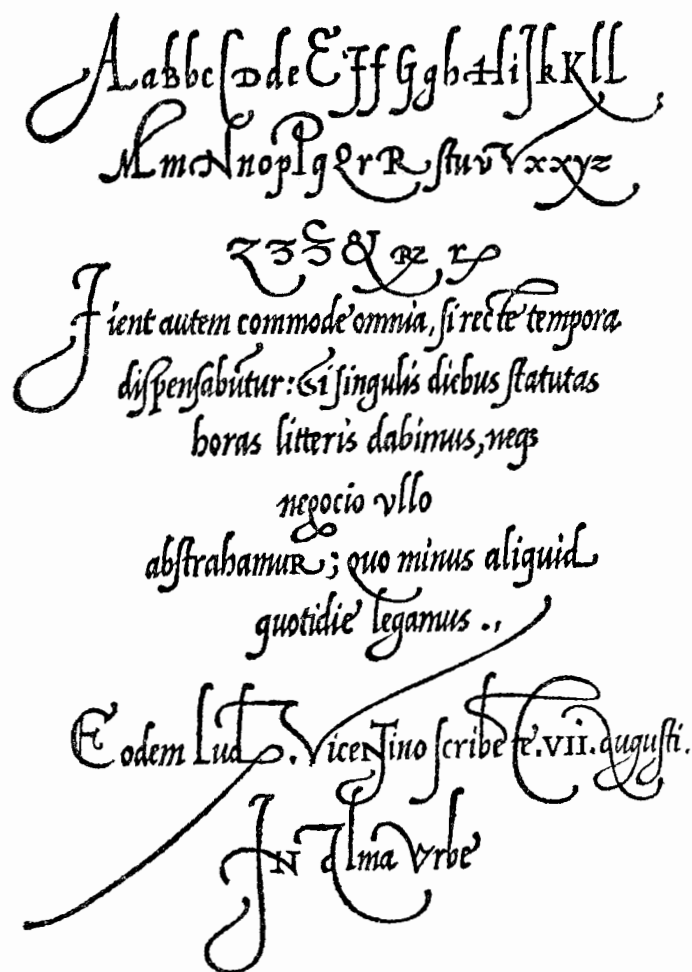 AaBbcCDdeEFfGghHiJkKlL
MmNnopPqQrRſtuvVxxyz
Z 3 Ʒ & RZ r
Fient autem commode omnia, ſi recte tempora
diſpenſabūtur: Et ſi ſingulis diebus ſtatutas
horas litteris dabimus, neqꝫ
negocio vllo
abſtrahamuR; quo minus aliquid
quotidie legamus .,
Eodem Lud. VicenTino ſcribēte. VII. auguſti.
IN alma Vrbe